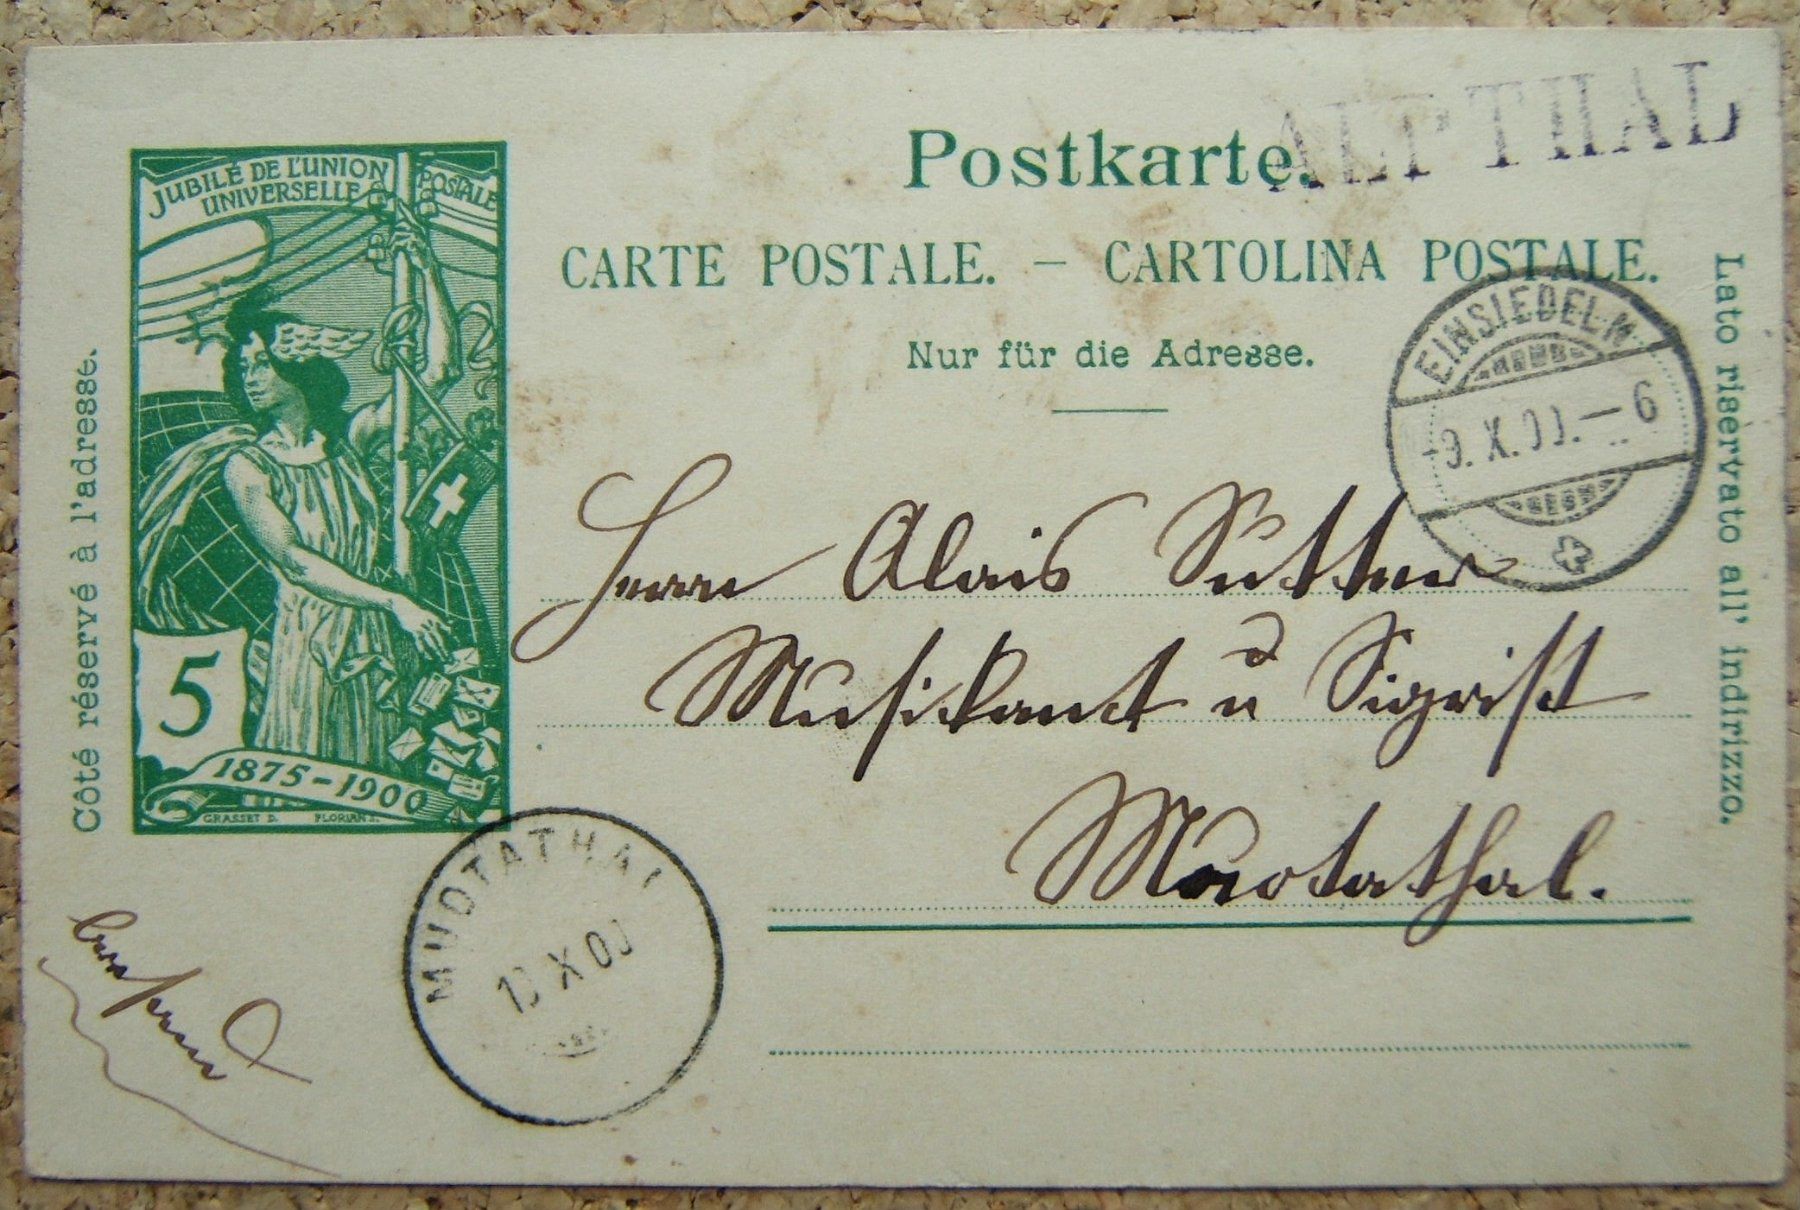 ALPTHAL
Postkarte.
CARTE POSTALE. — CARTOLINA POSTALE.
Nur für die Adresse.
Côté réservé à l'adresse.
Lato riservato all' indirizzo.
JUBILÉ DE L'UNION POSTALE
UNIVERSELLE
5
1875-1900
GRASSET D. FLORIAN S.
EINSIEDELN
-9. X. 00. — 6
Herrn Alois Sutter
Musikant u Sigrist
Muotathal.
MUOTATHAL
10 X 00